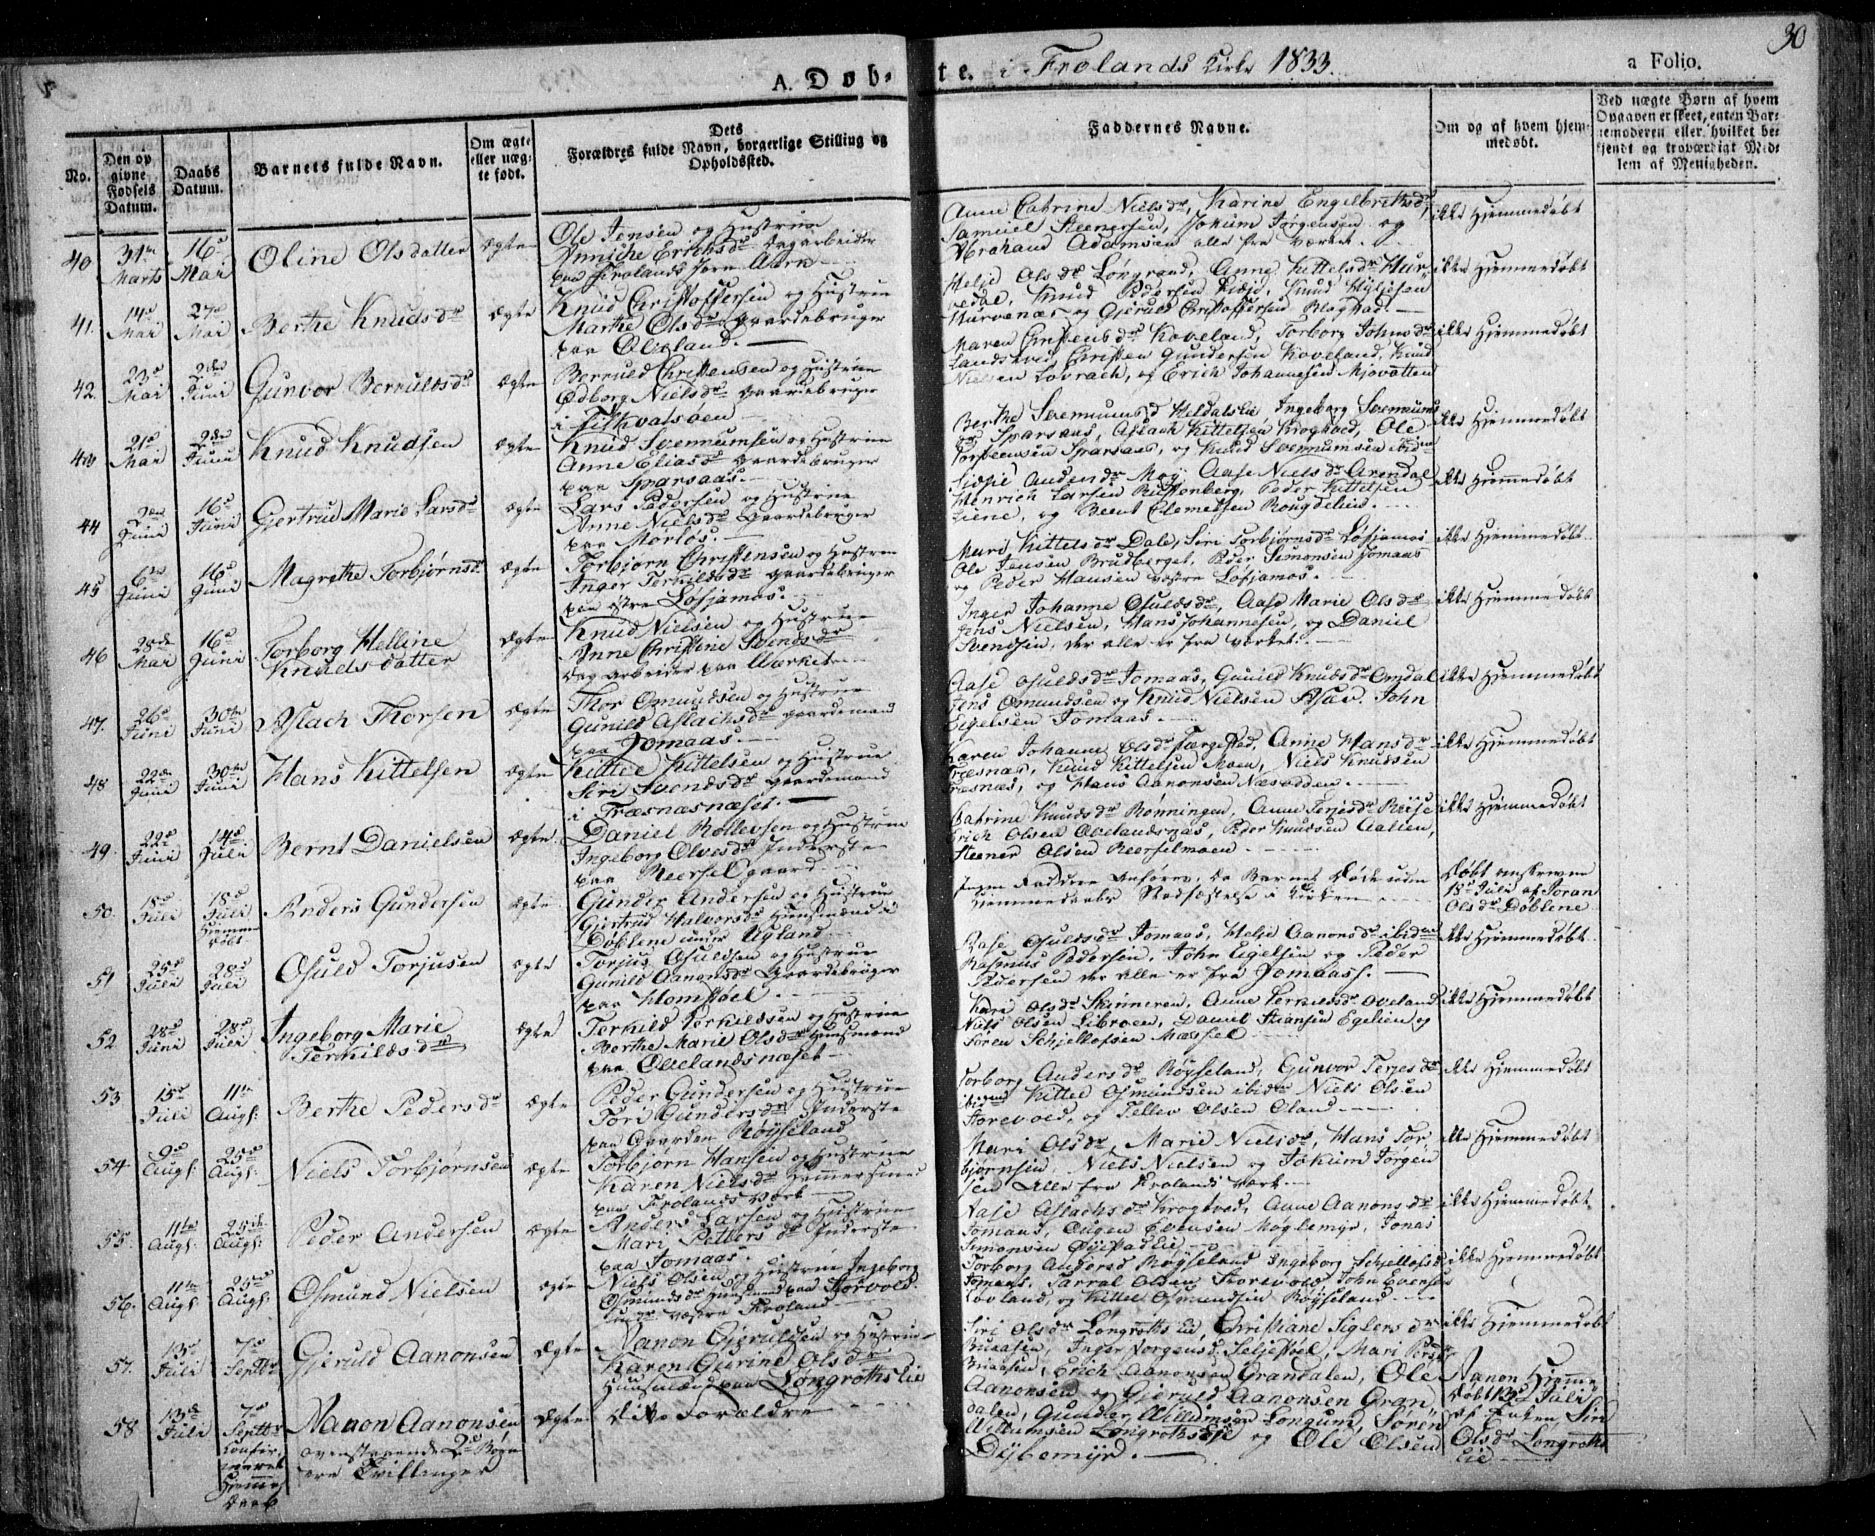 30
A. Døb-
te. i Frolands Kirke 1833.
a Folio.
No.
Den op
givne
Fødsels
Datum.
Daabs
Datum.
Barnets fulde Navn.
Om ægte
eller uæg-
te født.
Dets
Forældres fulde Navn, borgerlige Stilling og
Opholdssted.
Faddernes Navne.
Om og af hvem hjem-
medøbt.
Ved uægte Børn af hvem
Opgaven er skeet, enten Bar-
nemoderen eller hvilket be-
kjendt og troværdigt Med-
lem af Menigheden.
40 31te Marts 16d Mai Oline Olsdatter Ægte
Ole Jensen og Hustrue
Anniche Erichsdr Dagarbeider
paa Frolands Jern
Anne Catrine Nielsdr, Karine Engelbrithsdr
Samuel Steenersen, Jokum Jørgensen og
Abraham Adamsen alle fra Værket
ikke Hjemmedøbt
41. 14d Mai 27d Mai Berthe Knudsdr Ægte
Knud Christophersen og Hustrue
Marthe Olsdr Gaardebruger
paa Oveland.
Helje Olsdr Anne Kittelsdr
Knud Pedersen Knud
og Gjeruld Christophersen
ikke Hjemmedøbt
42. 23d Mai 2den Juni Gunvor Berruldsdr Ægte
Berruld Christensen og Hustrue
Ødborg Nielsdr Gaardebruger
i
Maren Christensdr Koveland, Torborg Johnsdr
Christen Gundersen Koveland, Knud
Nielsen og Erich Johannesen Mjovatten
ikke Hjemmedøbt
43 21d Mai 2den Juni Knud Knudsen Ægte
Knud Svennumsen og Hustrue
Anne Eliasdr Gaardebruger
paa Sparsaas.
Berthe Svennumsd Heldalslie, Ingeborg Svennums
dr Sparsaas, Aslach Kittelsen Ole
Torstensen Sparsaas, og Knud Svennumsen ibid
ikke Hjemmedøbt
44 2den Juni 16d Juni Gjertrud Marie Larsdr Ægte
Lars Pedersen og Hustrue
Anne Nielsdr Gaardebruger
paa Morløs.
Aase Nielsdr Arendal
Henrich Larsen Peder Kittelsen
Liene, og Beent Clemetsen
ikke Hjemmedøbt
45 6te Juni 16d Juni Magrethe Torbjørnsdr Ægte
Torbjørn Christensen og Hustrue
Inger Terkildsdr Gaardebruger
paa østre Løfsjamos.
Mari Kittelsdr Dale, Siri Torbjørnsdr Løfsjamos
Ole Jensen Brudberget, Peder Simonsen Jomaas
og Peder Hansen vestre Løfsjamos.
ikke Hjemmedøbt
46 28de Mai 16d Juni Torborg Helline
Knudsdatter Ægte
Knud Nielsen og Hustrue
Anne Christine Svendsdr
Dagarbeider paa Værket
Inger Johanne Osuldsdr, Aase Marie Olsdr
Jens Nielsen, Hans Johannesen, og Daniel
Svendsen, der alle er fra værket.
ikke Hjemmedøbt
47. 26d Juni 30te Juni Aslach Thorsen Ægte
Thor Osmundsen og Hustrue
Gunild Aslachsdr Gaardemand
paa Jomaas.
Aase Osuldsdr Jomaas, Gunild Knudsdr Omdal
Jens Osmundsen og Knud Nielsen John
Egelsen Jomaas.
ikke Hjemmedøbt
48 22de Juni 30te Juni Hans Kittelsen Ægte
Kittel Kittelsen og Hustrue
Siri Svendsdr Gaardemand
i Træsnæsnæset.
Karen Johanne Olsdr Anne Hansdr
Træsnæs, Knud Kittelsen Moen, Niels Knudsen
Træsnæs, og Hans Aanonsen Næsodden
ikke Hjemmedøbt
49. 22d Juni 14d Juli Bernt Danielsen Ægte
Daniel Rollevsen og Hustrue
Ingeborg Olvesdr Inderste
paa Meersel gaard
Catrine Knudsdr Rønningen, Anne Terjesdr
Erich Olsen Ovelandsnæs, Peder Knudsen Aalien,
Steener Olsen Meerselmoen
ikke Hjemmedøbt
50. 18d Juli 18d Juli Hjemme
døbt Anders Gundersen Ægte
Gunder Andersen og Hustrue
Gjertrud Halvorsdr Huusmænd i
Døblene under Ugland
Ingen Faddere anføres, da Barnet døde uden
Hjemmedaabs Stadfæstelse i Kirken
Døbt
18d Juli af Joran
Olsdr Døblene
51 25d Juli 28d Juli Osuld Torjusen Ægte
Torjus Osuldsen og Hustrue
Gunild Aanonsdr Gaardebruger
paa Homstøel
Aase Osuldsdr Jomaas, Helje Aanonsdr ibidm
Rasmus Pedersen, John Egelsen og Peder
Pedersen der alle er fra Jomaas.
ikke Hjemmedøbt
52. 28d Juni 28d Juli Ingeborg Marie
Terkildsdr Ægte
Terkild Terkildsen og Hustrue
Berthe Marie Olsdr Huusmand
paa Ovelandsnæset
Kari Olsdr Skinneren, Anne Terkildsdr Oveland
Niels Olsen Libroen, Daniel Egelien og
Søren Schjellofsen Messel
ikke Hjemmedøbt
53 15d Juli 11te Augs: Berthe Pedersdr Ægte
Peder Gundersen og Hustrue
Tori Gundersdr Inderste
paa Gaarden Røyseland
Torborg Andersdr Røyseland, Gunvor Terjesdr
ibidm Kittel Osmundsen ibidm Niels Olsen
Storevold, og Tellev Olsen Oland
ikke Hjemmedøbt
54 9d Augs: 25d Augs: Niels Torbjørnsen Ægte
Torbjørn Hansen og Hustrue
Karen Nielsdr Hammersmed
paa Frolands Værk
Mari Olsdr, Marie Nielsdr, Hans Tor-
bjørnsen, Niels Nielsen og Jokum Jørgen
sen Alle fra Frolands Værk
ikke Hjemmedøbt
55. 11te Augs: 25de Augs: Peder Andersen Ægte
Anders Larsen og Hustrue
Mari Pedersdr Inderste
paa Jomaas
Aase Aslachsdr Anne Aanonsdr
Jomaas, Evensen Møglemyr, Jonas
Simonsen
ikke Hjemmedøbt
56. 11te Augs: 25de Augs: Osmund Nielsen Ægte
Niels Olsen og Hustrue Ingeborg
Osmundsdr Huusmand paa Storvold
vestre Froland
Torborg Andersd Røyseland Ingeborg Schjellofsd
Jomaas, Tarral Olsen Storevold, John Evensen
Lovland, og Kittel Osmundsen Røyseland
ikke Hjemmedøbt
57. 13d Juli 7d Septbr Gjeruld Aanonsen Ægte
Aanon Gjeruldsen og Hustrue
Karen Gurine Olsdr
Huusmænd paa Longrothslie
Siri Olsdr Longrothslie, Christiane Siglersdr
Bruaasen, Inger Jorgensd Seljestøel, Mari Persdr
Bruaasen, Erich Aanonsen Grandalen, Ole
Aanonsen og Gjeruld Aanonsen Gran
ikke Hjemmedøbt
58 13d Juli 7d Septbr
Confir-
meret
Hjemme
daab
Aanon Aanonsen
ovenstaaende 2d Børn
ere Tvillinger Ægte
dito Forældre
dalen, Gunder Willumsen Longum, Søren
Willumsen Longrothslie og Ole Olsen
Dybemyr.
Aanon Hjemme
døbt 13d Juli
af Enken Siri
Olsdr Longroths
lie